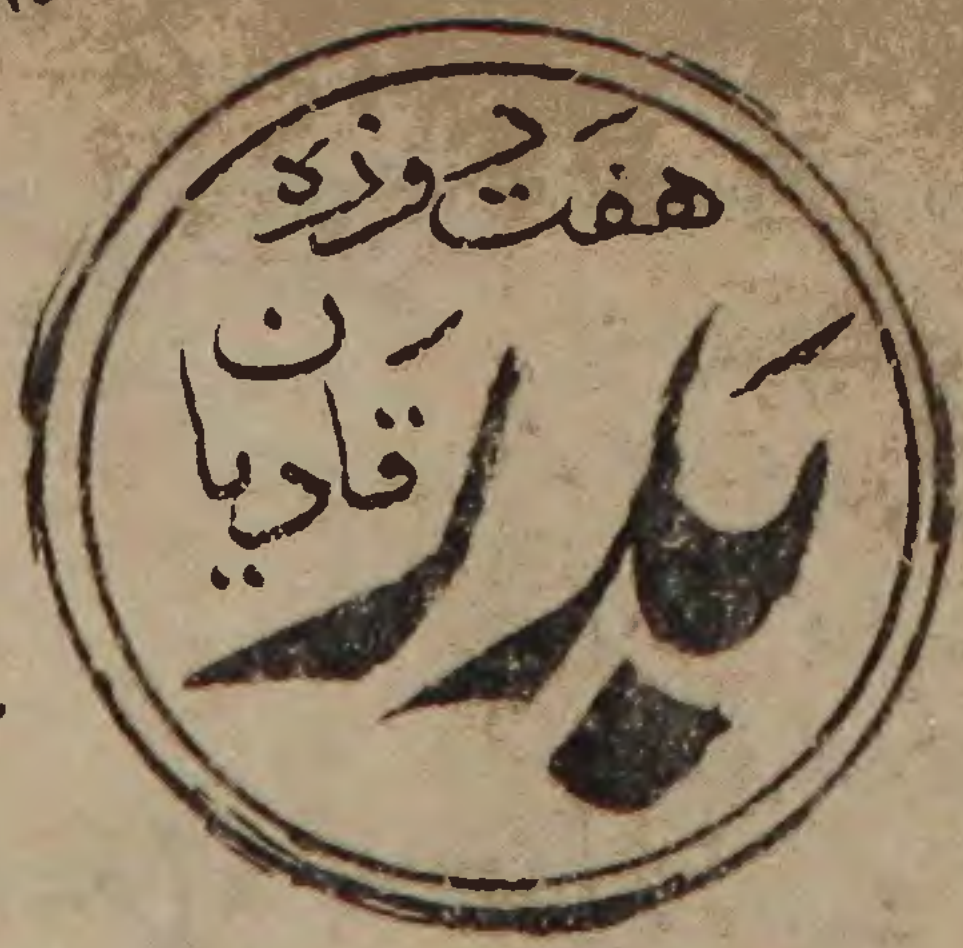 هفت روزہ
بَدر
قادیان